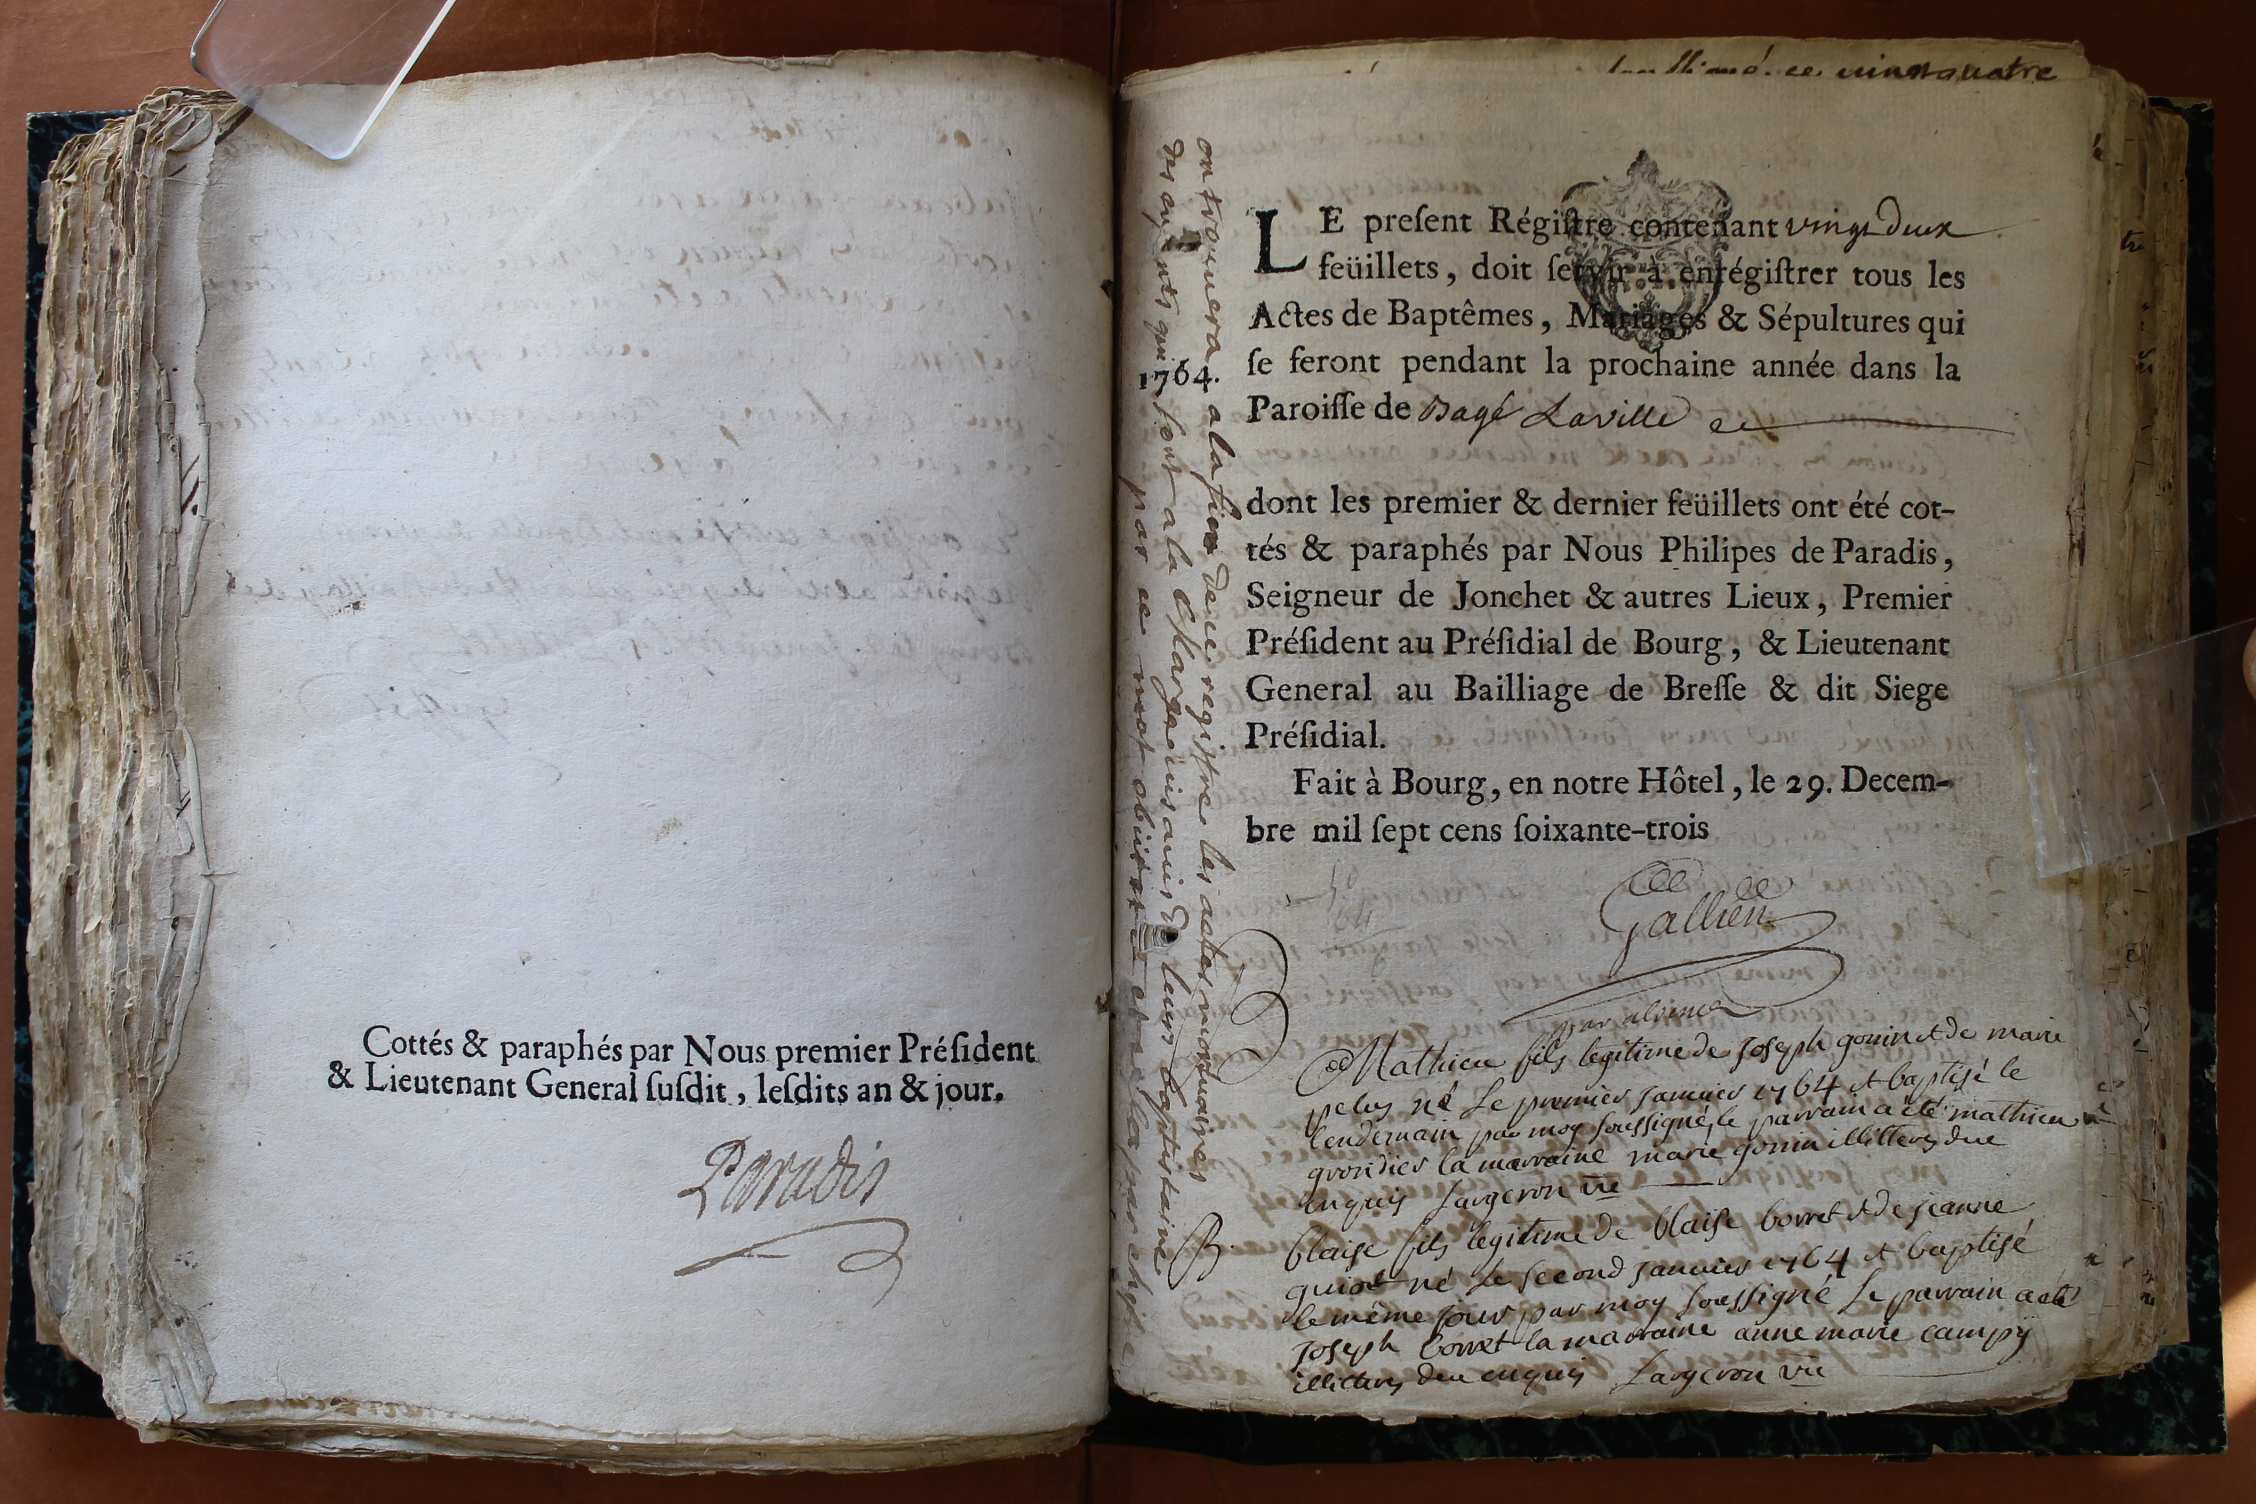 Cottés & paraphés par Nous premier Préſident
& Lieutenant General ſuſdit, leſdits an & jour.
Paradis
ce vingt quatre
on trouvera a la fin de ce registre les actes mortuaires
des enfants qui sont a la
par ce mot obiit et cela par
1764.
LE preſent Régiſtre contenant vingt Deux
feüillets, doit ſervir à enrégiſtrer tous les
Actes de Baptêmes, Mariages & Sépultures qui
ſe feront pendant la prochaine année dans la
Paroiſſe de Bagé Laville
dont les premier & dernier feüillets ont été cot-
tés & paraphés par Nous Philipes de Paradis,
Seigneur de Jonchet & autres Lieux, Premier
Préſident au Préſidial de Bourg, & Lieutenant
General au Bailliage de Breſſe & dit Siege
Préſidial.
Fait à Bourg, en notre Hôtel, le 29. Decem-
bre mil ſept cens ſoixante-trois
Gallien
B
Mathieu fils legitime de Joseph gonin et de marie
pelus né le premier janvier 1764 et baptisé le
lendemain par moy soussigné, le parrain a été mathieu
la marraine marie gonin illitterés
enquis Largeron vre
B.
blaise fils legitime de blaise borret et de jeanne
guiot né le second janvier 1764 et baptisé
le même jour par moy soussigné le parrain a été
joseph borret la marraine anne marie campy
illitterés enquis Largeron vre